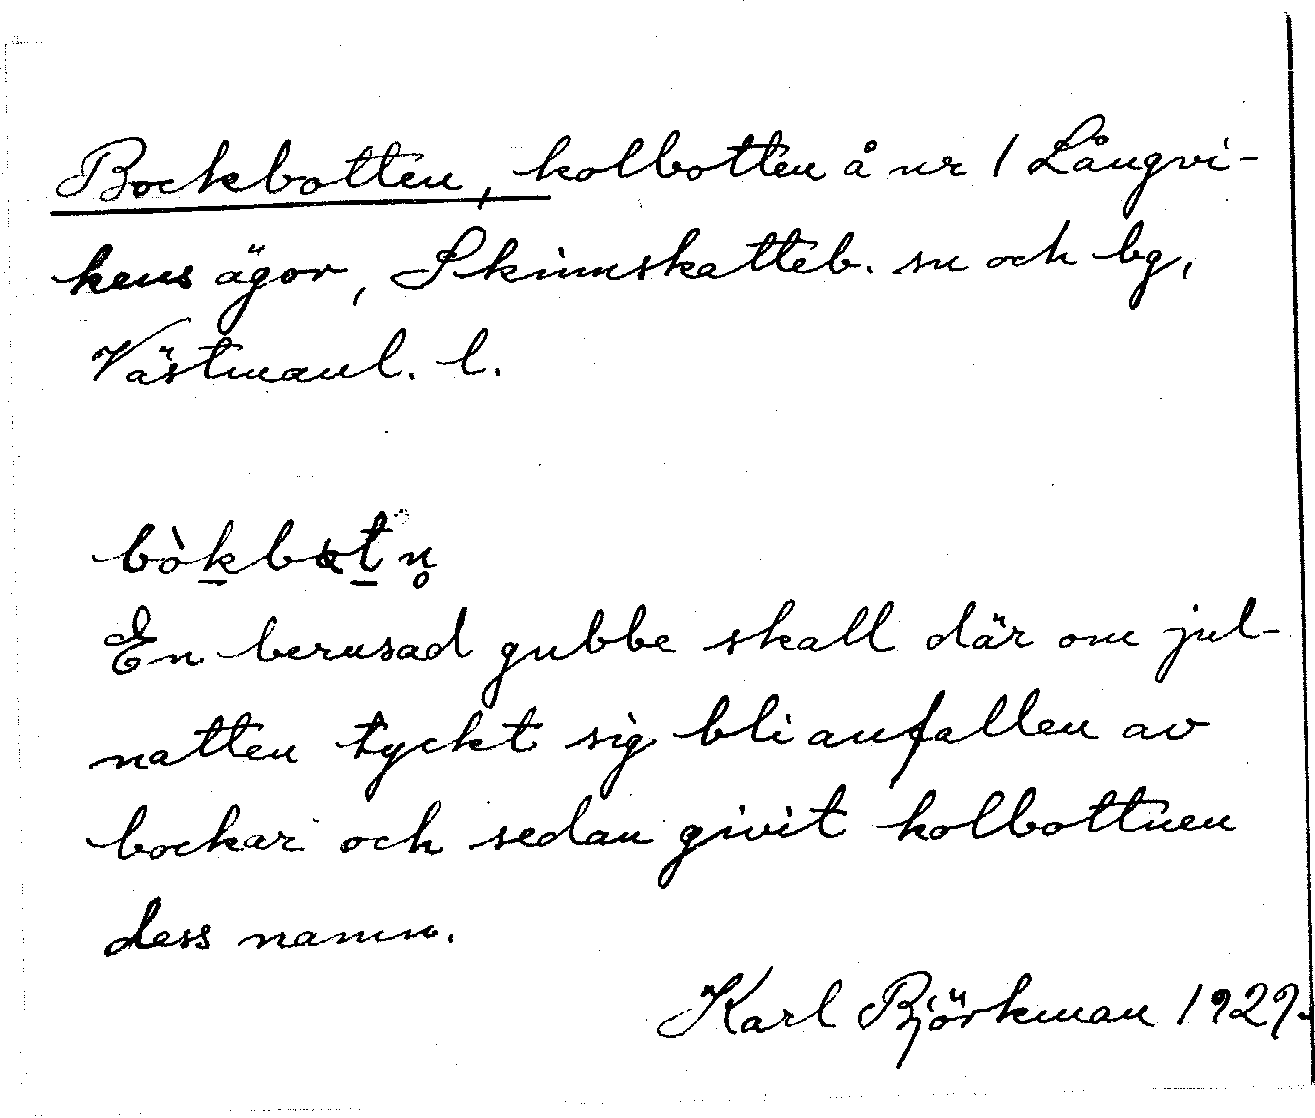 Bockbotten, kolbotten å nr 1 Långvi-
kens ägor, Skinnskatteb. sn och bg,
Västmanl. l.
bòk̲bot̲n̥
En berusad gubbe skall där om jul-
natten tyckt sig bli anfallen av
bockar och sedan givit kolbottnen
dess namn.
Karl Björkman 1929.